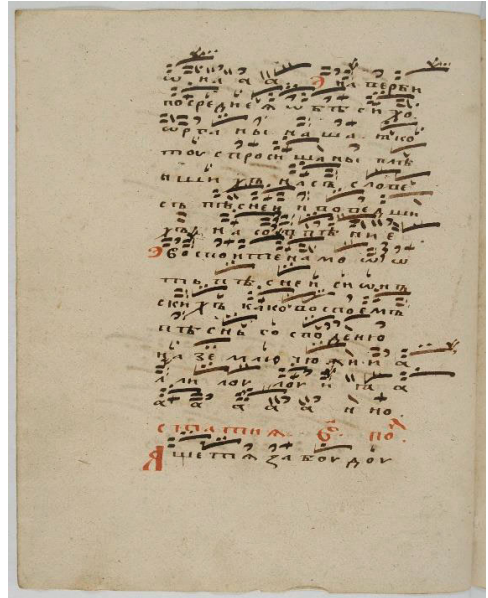 ѡ на а а э на верби
по среднеꙗ ѡбѣсихо
ѡрганы наша ꙗко
тоу спросишаны плѣ
ншихъ насъ слове
съ пѣснеи и поведши
хъ на пѣние
э воспоитенамо ѡ ѡ
тъ пѣснеи сиѡнъ
скихъ како воспоемъ
пѣснь господеню
на землю тюжии а
лли лоу лоу и ꙗ а
а а а а а и но
статиꙗ в҃ по
Аще тѧ забоудоу